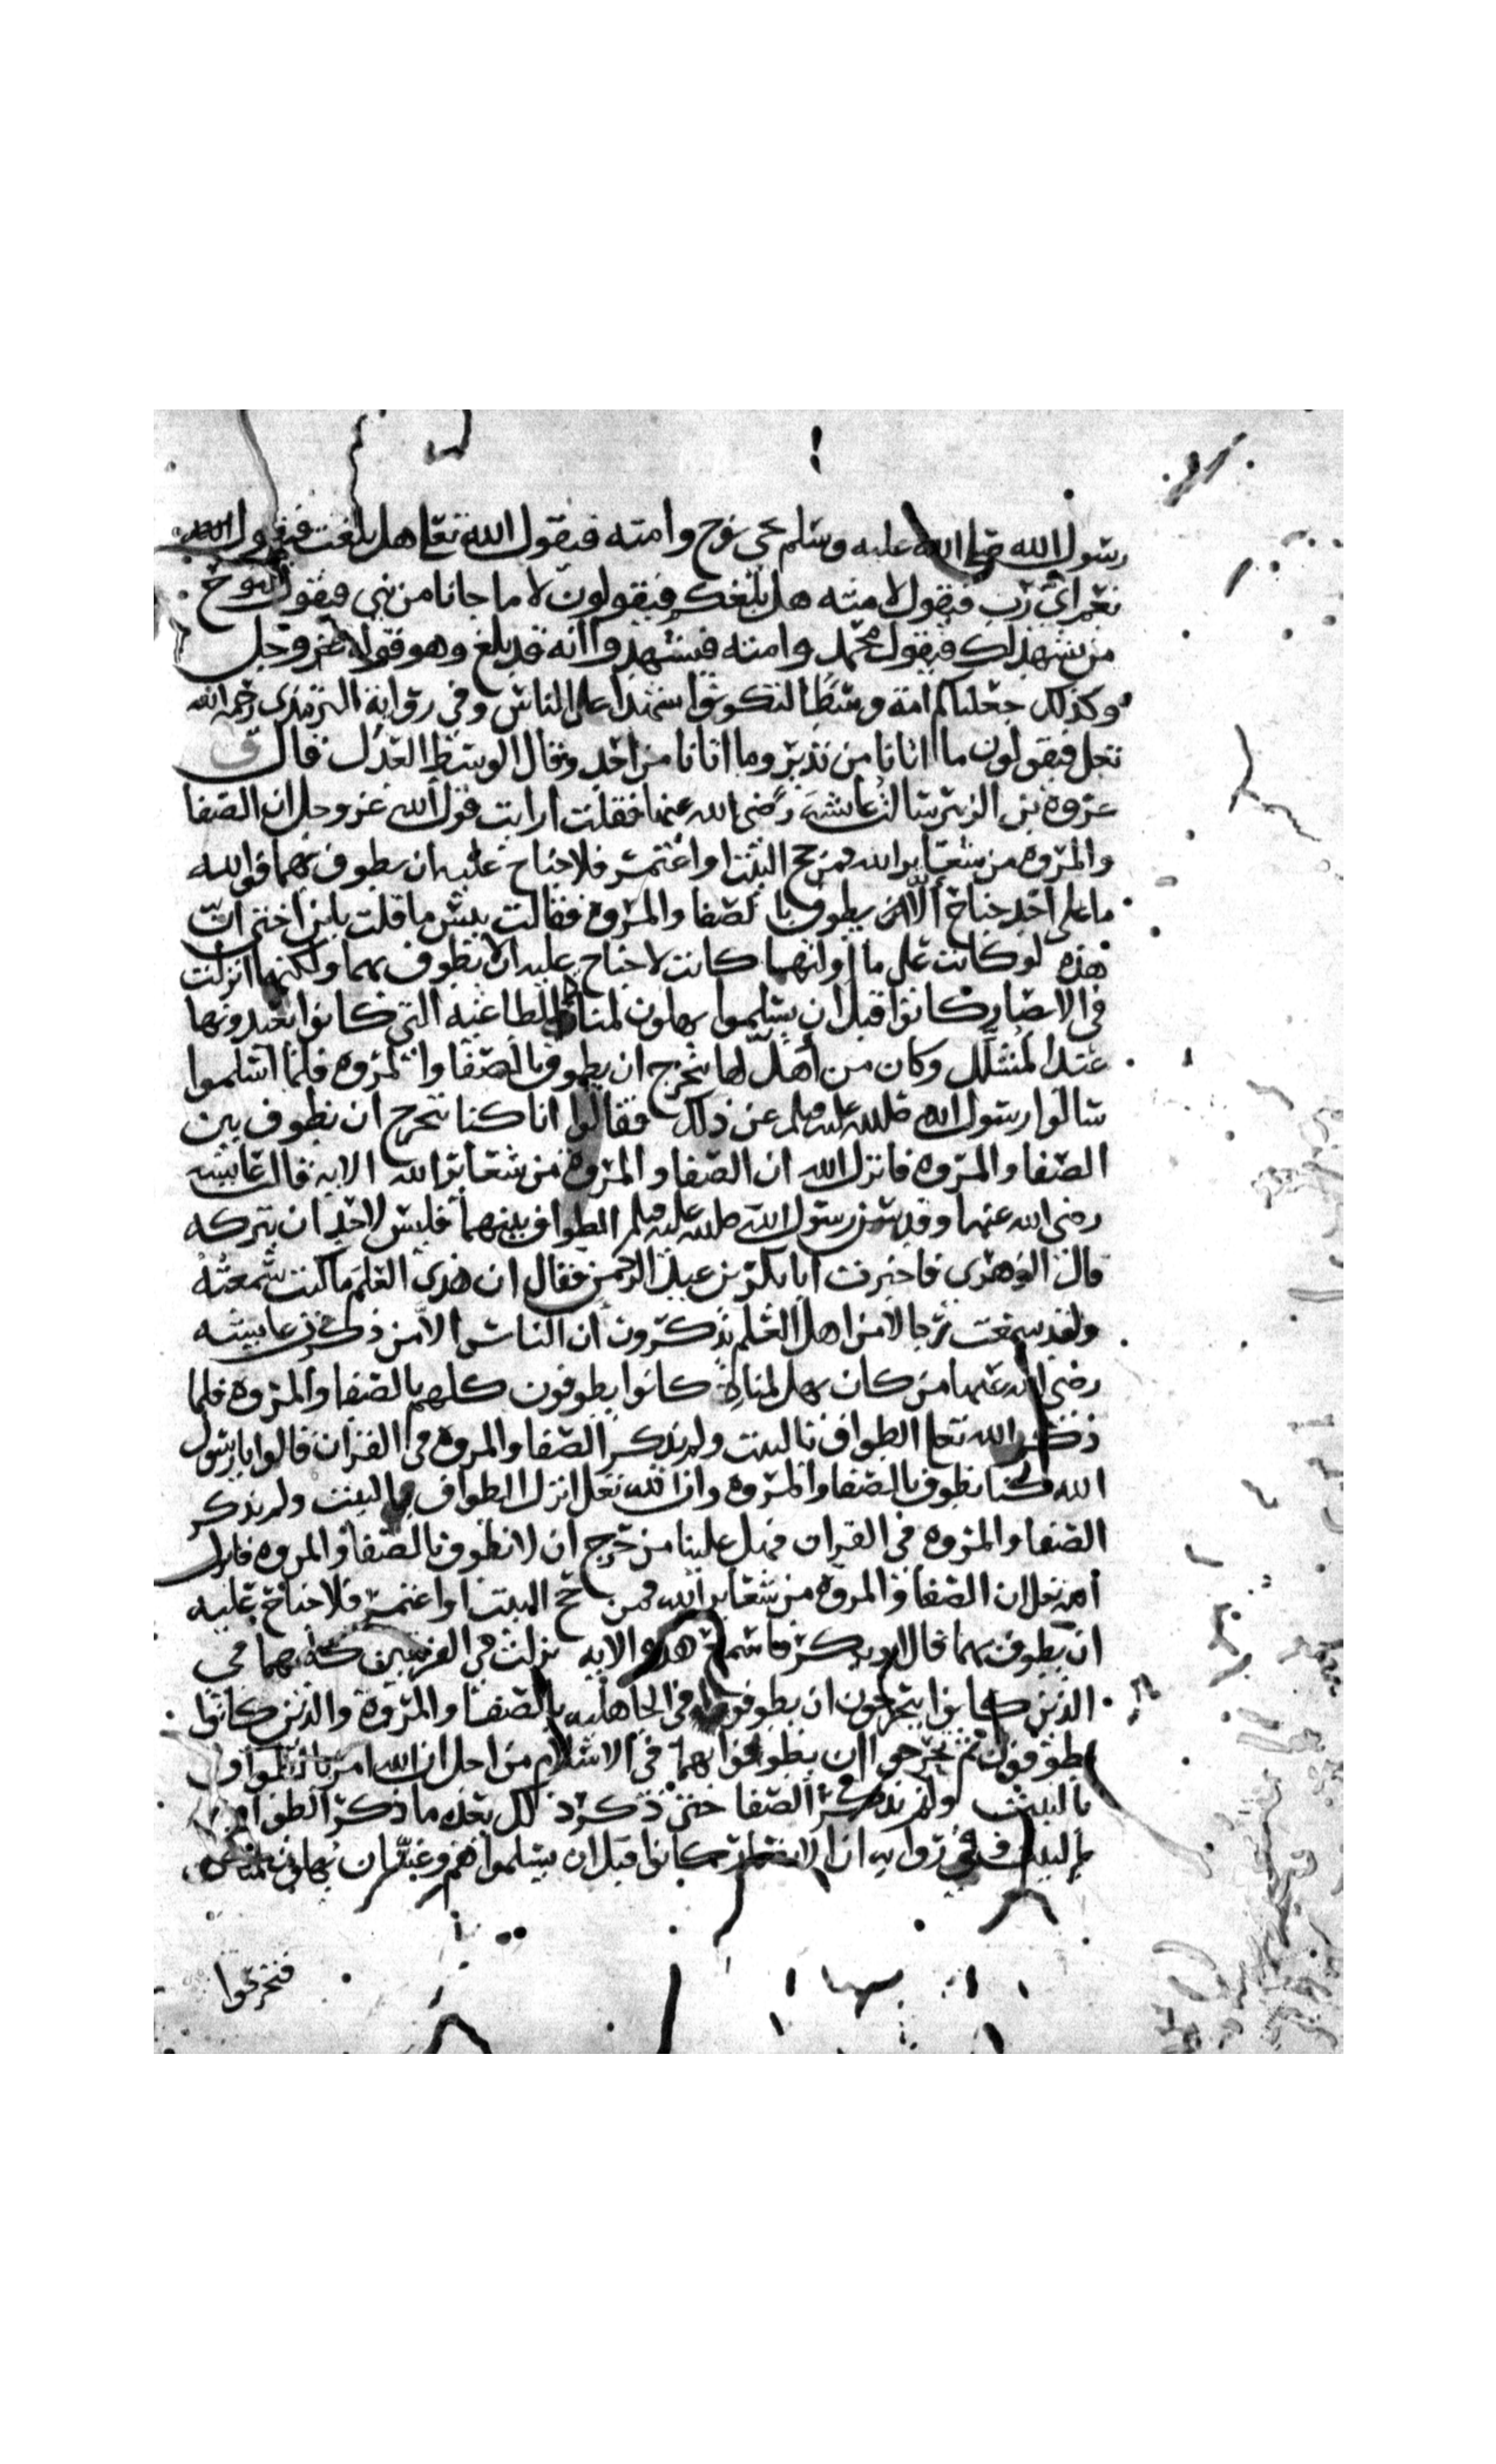 رسول الله صلى الله عليه وسلم يجي نوح وامته فيقول الله تعا هل بلغت فيقول
نعم اي رب فيقول لامته هل بلغكم فيقولون لا ما جانا من نبي فيقول لنوح
من يشهد لك فيقول محمد وامته فيشهدوا انه قد بلغ وهو قوله عز وجل
وكذلك جعلناكم امة وسطا لتكونوا شهدا على الناس وفي رواية الترمذي رحمه الله
تعلى فيقولون ما اتانا من نذير وما اتانا من احد وقال الوسط العدل قال
عروة بن الزبير سالت عايشة رضي الله عنها فقلت ارايت قول الله عز وجل ان الصفا
والمروه من شعاير الله فمن حج البيت او اعتمر فلا جناح عليه ان يطوف بهما فوالله
ما على احد جناح الا يطوف بالصفا والمروة فقالت بيس ما قلت يابن اختي ان
هذه لو كانت على ما اولتها كانت لا جناح عليه الا يطوف بهما ولكنها انزلت
في الانصار كانوا قبل ان يسلموا يهلون لمناة الطاغيه التي كانوا يعبدونها
عند المشلل وكان من اهل لها تحرج ان يطوف بالصفا والمروه فلما اسلموا
سالوا رسول الله صلى الله عليه وسلم عن ذلك فقالوا انا كنا نتحرج ان نطوف بين
الصفا والمروه فانزل الله ان الصفا والمروة من شعاير الله الايه قالت عايشه
رضي الله عنها وقد سن رسول الله صلى الله عليه وسلم الطواف بينهما فليس لاحد ان يتركه
قال الزهري فاخبرت ابا بكر بن عبد الرحمن فقال ان هذي العلم ما كنت سمعته
ولقد سمعت رجالا من اهل العلم يذكرون ان الناس الا من ذكرت عايشه
رضي الله عنها من كان يهل لمناة كانوا يطوفون كلهم بالصفا والمروه فلما
ذكر الله تعا الطواف بالبيت ولم يذكر الصفا والمروه في القران قالوا يا رسول
الله كنا نطوف بالصفا والمروه وان الله تعلى انزل الطواف بالبيت ولم يذكر
الصفا والمروه في القران فهل علينا من حرج ان لا نطوف بالصفا والمروه فانزل
الله تعلى ان الصفا والمروة من شعاير الله فمن حج البيت او اعتمر فلا جناح عليه
ان يطوف بهما قال ابو بكر فاسمع هذه الايه نزلت في الفريقين كليهما في
الذين كانوا يتحرجون ان يطوفوا في الجاهليه بالصفا والمروة والذين كانوا
يطوفون ثم تحرجوا ان يطوفوا بهما في الاسلام من اجل ان الله امر بالطواف
بالبيت ولم يذكر الصفا حتى ذكر ذلك بعد ما ذكر الطواف
بالبيت وفي روايه ان الانصار كانوا قبل ان يسلموا هم وغسان يهلون لمناة
فتحرجوا